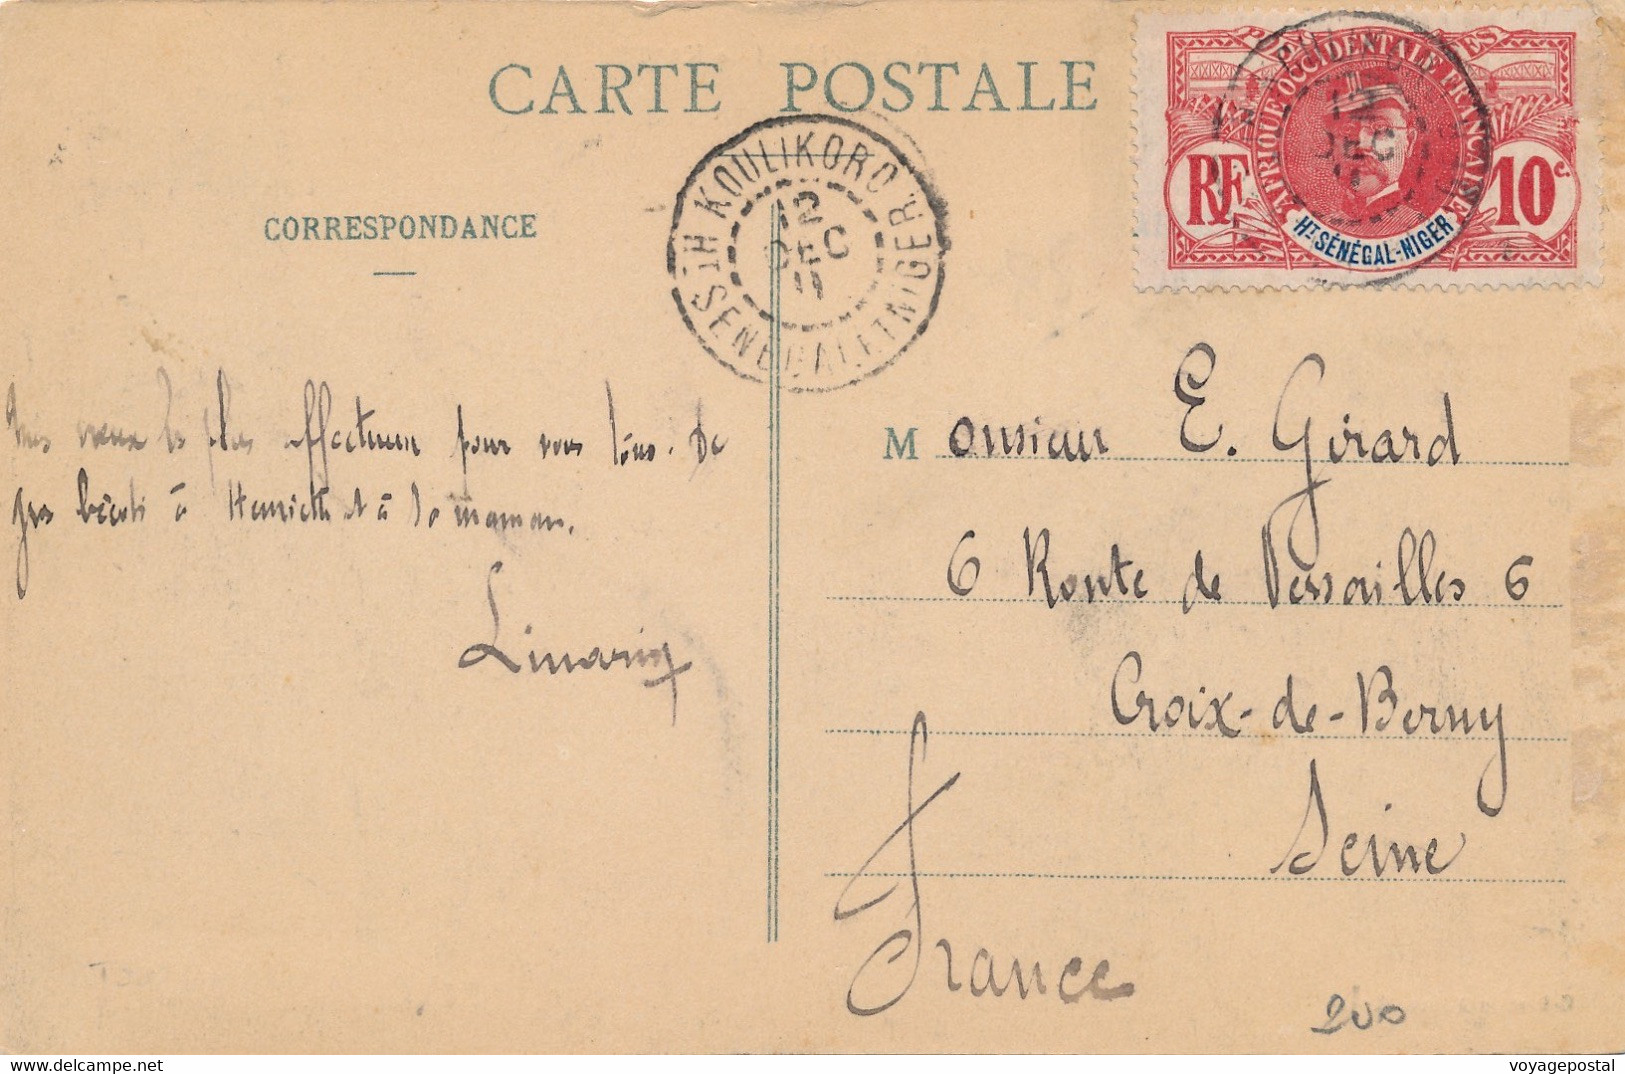 CARTE POSTALE
CORRESPONDANCE
KOULIKORO
12
DEC
11
HT SENEGAL ET NIGER
AFRIQUE OCCIDENTALE FRANÇAISE
POSTES
RF
10 c.
HT SÉNÉGAL-NIGER
12
DEC
11
Mes vœux les plus affectueux pour vous tous. De
gros bécots à Henriette et à sa maman.
Monsieur E. Girard
6 Route de Versailles 6
Croix-de-Berny
Seine
France
200
voyagepostal